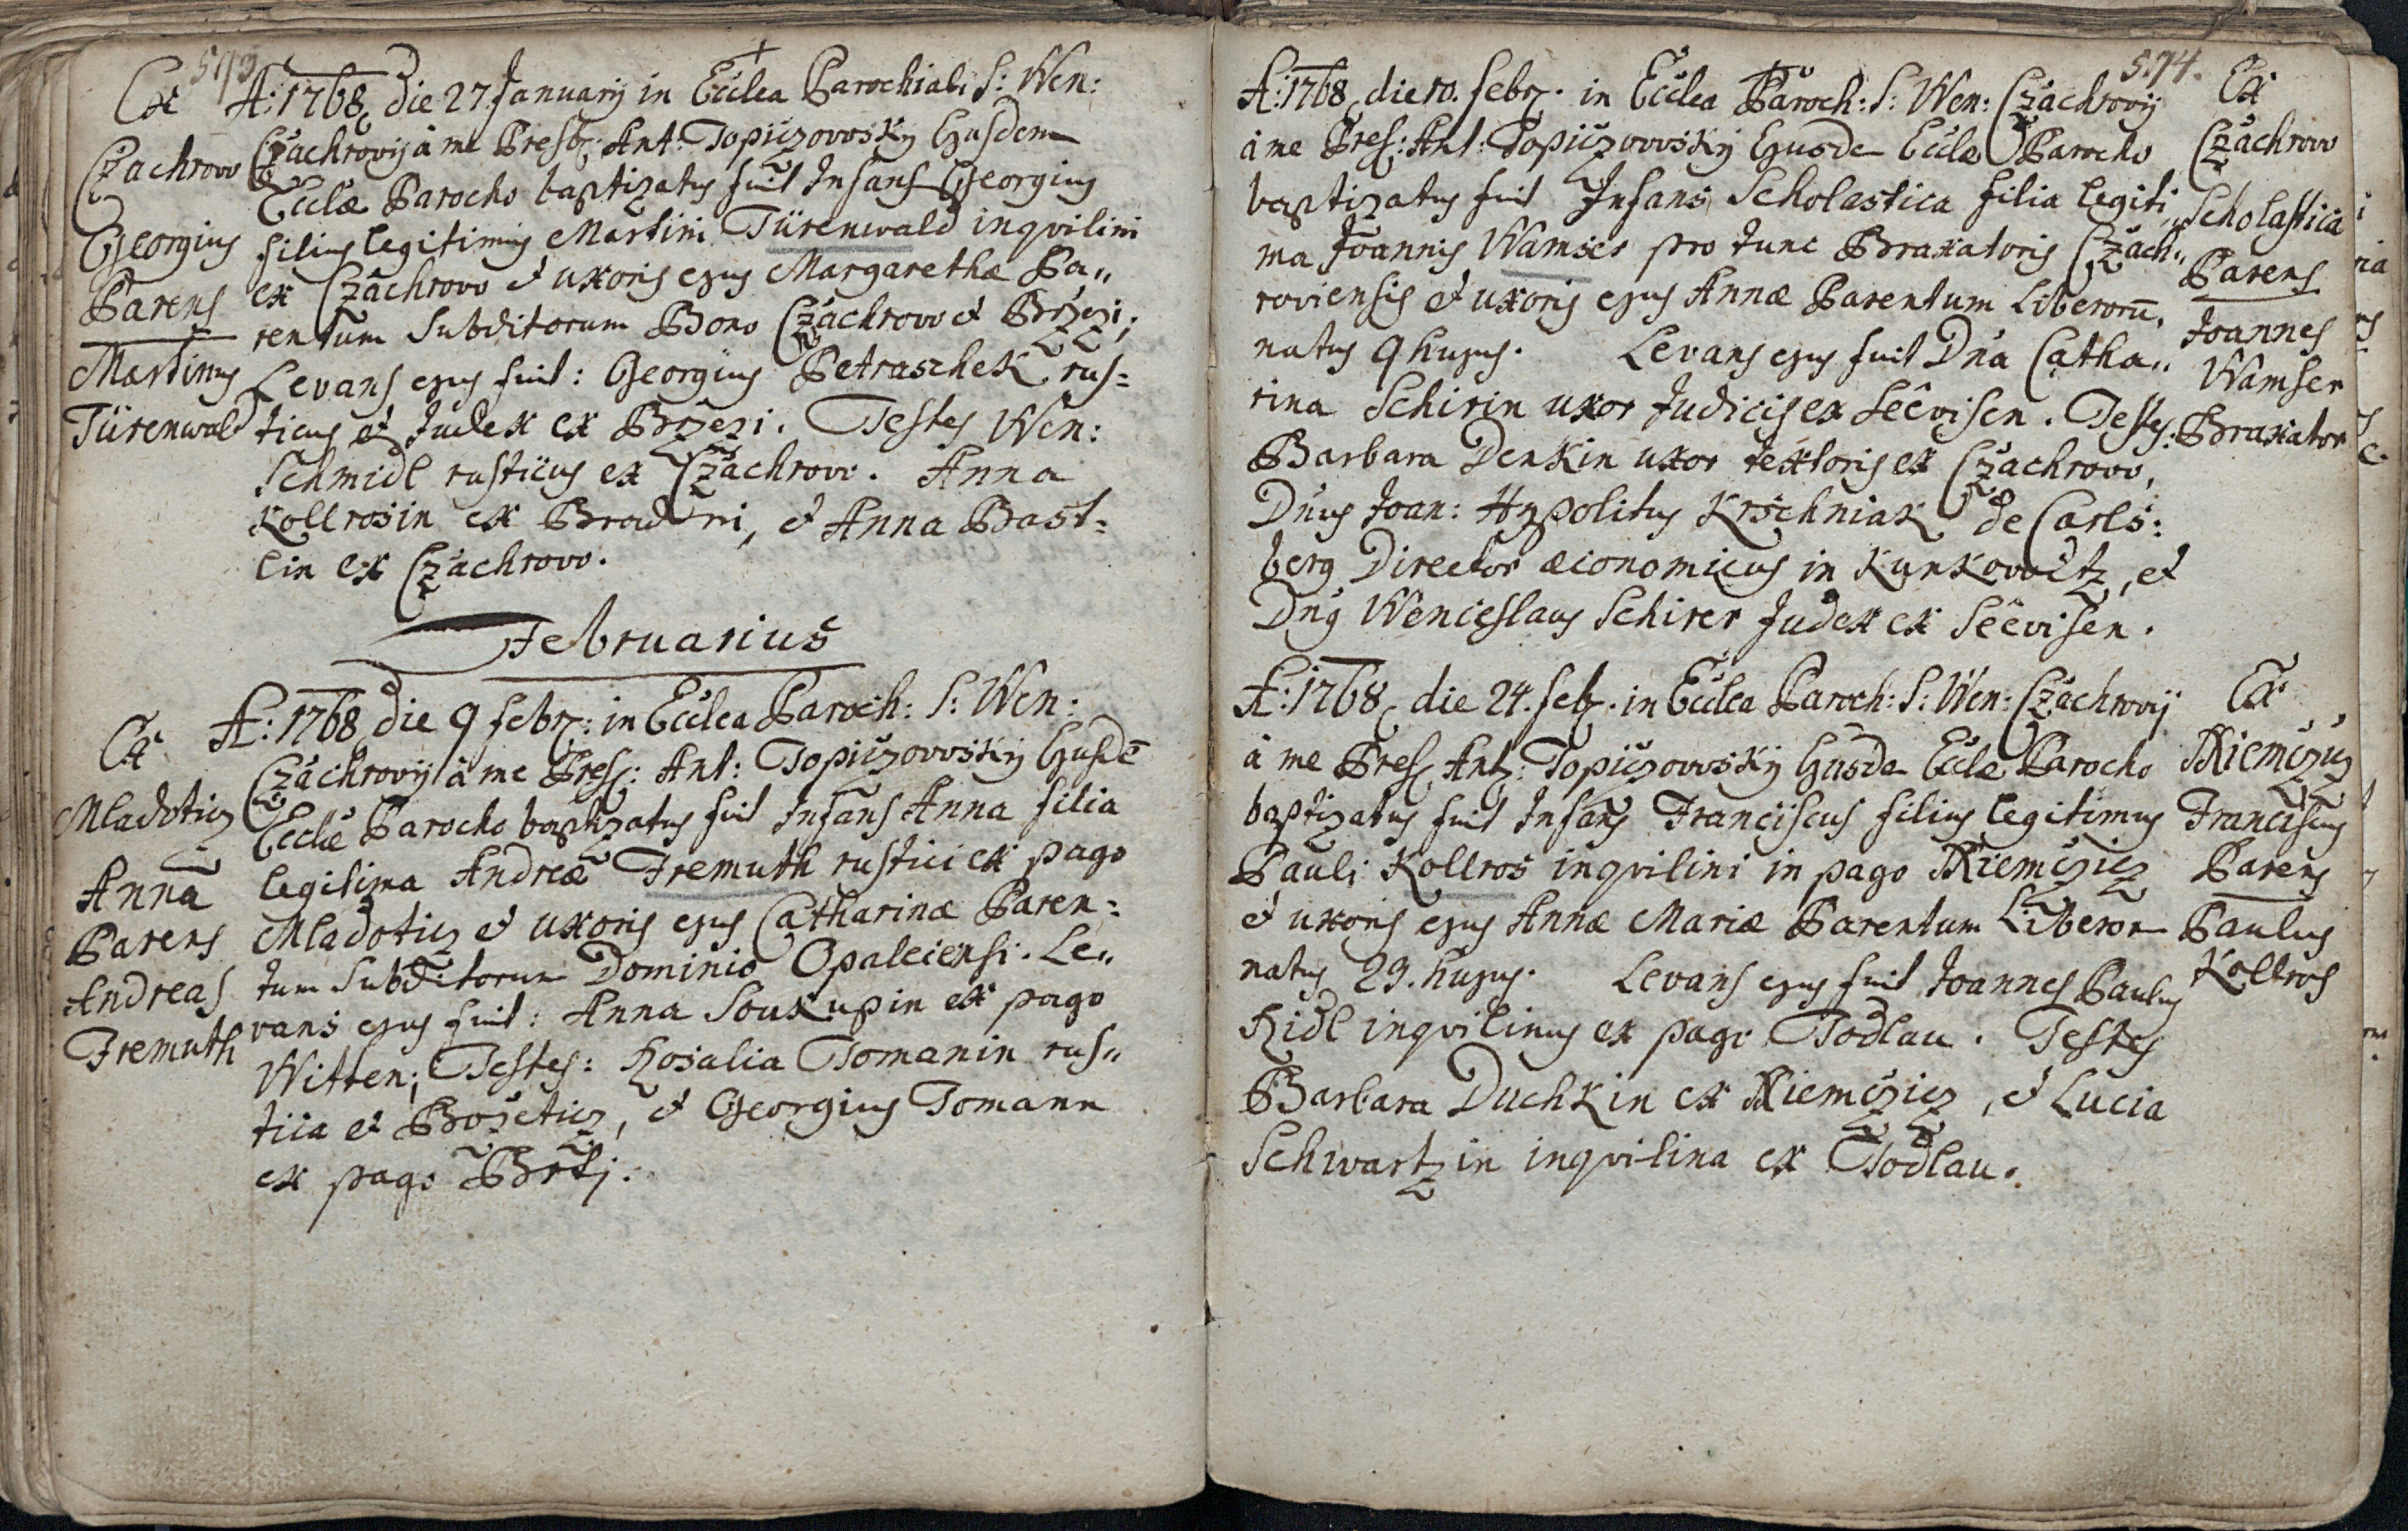 573
Ex
Czachrow
Georgius
Parens
Martinus
Türenwald
A: 1768 die 27 Januarij in Ecclea Parochiali S: Wen:
Czachrovij à me Presb: Ant: Topiczowsky Ejusdem
Ecclæ Parocho baptizatus fuit Infans Georgius
filius legitimus Martini Türenwald inqvilini
ex Czachrow et uxoris ejus Margarethæ Pa„
rentum Subditorum Bono Czachrow et Brzezi;
Levans ejus fuit: Georgius Petraschek rus=
ticus et Judex ex Brzezi. Testes Wen:
Schmidl rusticus ex Czachrow. Anna
Kollrosin ex Bradni, et Anna Bast=
lin ex Czachrow.
Februarius
Ex
Mladoticz
Anna
Parens
Andreas
Fremuth
A: 1768 die 9 febr: in Ecclea Paroch: S: Wen:
Czachrovij à me Pres: Ant: Topiczowsky Ejusdē
Ecclæ Parocho baptizatus fuit Infans Anna filia
legitima Andreæ Fremuth rustici ex pago
Mladoticz et uxoris ejus Catharinæ Paren=
tum Subditorum Dominio Opalciensi. Le„
vans ejus fuit: Anna Soukupin ex pago
Witten; Testes: Rosalia Tomanin rus„
tica ex Bozeticz, et Georgius Tomann
ex pago Brtj.
574.
A: 1768 die 10. febr. in Ecclea Paroch: S: Wen: Czachrovij
à me Pres: Ant: Topiczowsky Ejusde Ecclæ Parocho
baptizatus fuit Infans Scholastica filia legiti„
ma Joannis Wamser pro tunc Braxatoris Czach„
roviensis et uxoris ejus Annæ Parentum Liberorū,
natus 9 hujus. Levans ejus fuit Dna Catha„
rina Schirin uxor Judicis ex Seêvisen. Testes:
Barbara Denkin uxor textoris ex Czachrow,
Dnus Joan: Hypolitus Krschniak de Carls:
berg Director œconomicus in Kunkowitz, et
Dnus Wenceslaus Schirer Judex ex Seêvisen.
Ex
Czachrow
Scholastica
Parens
Joannes
Wamser
Braxator
A: 1768 die 24. feb. in Ecclea Paroch: S: Wen: Czachrovij
à me Pres Ant: Topiczowsky Ejusde Ecclæ Parocho
baptizatus fuit Infans Franciscus filius legitimus
Pauli Kollros inqvilini in pago Niemczicz
et uxoris ejus Annæ Mariæ Parentum Liberor
natus 23. hujus. Levans ejus fuit Joannes Paulus
Ridl inqvilinus ex pago Todlau. Testes
Barbara Duchkin ex Niemczicz, et Lucia
Schwartzin inqvilina ex Todlau.
Ex
Niemczicz
Franciscus
Parens
Paulus
Kollros